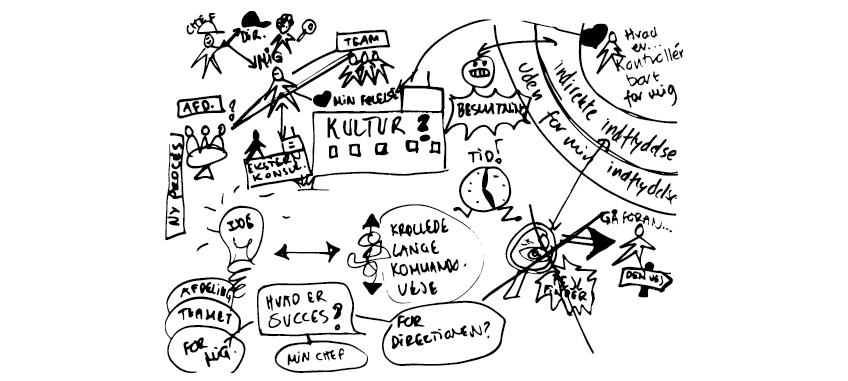 CHEF
DIR.
MIG
TEAM
MIN FØLELSE
AFD. ?
NY PROCES
EKSTERN
KONSUL.
KULTUR ?
BESLUTNING
TID!
Hvad
er...
Kontrollér
bart
for mig
indirekte indflydelse
uden for min indflydelse
IDE
KRØLLEDE
LANGE
KOMMANDO-
VEJE
GÅ FORAN...
DEN VEJ
FEJL
FINDER!
AFDELING
TEAMET
FOR
MIG.
HVAD ER
SUCCES?
MIN CHEF
FOR
DIREKTIONEN?